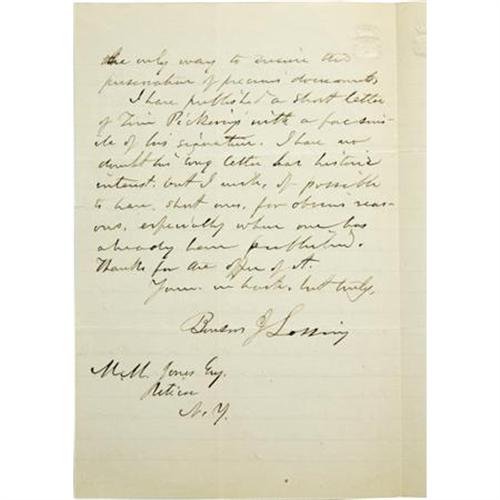 the only way to insure the
preservation of precious documents
I have published a short letter
of Tim Pickering's with a facsim-
ile of his signature. I have no
doubt his long letter has historic
interest, but I wish, if possible
to have, short ones, for obvious reas-
ons, especially when one has
already been published.
Thanks for the offer of it.
Yours in haste, but truly,
Benson J Lossing
M. M. Jones Esq.
Utica
N. Y.